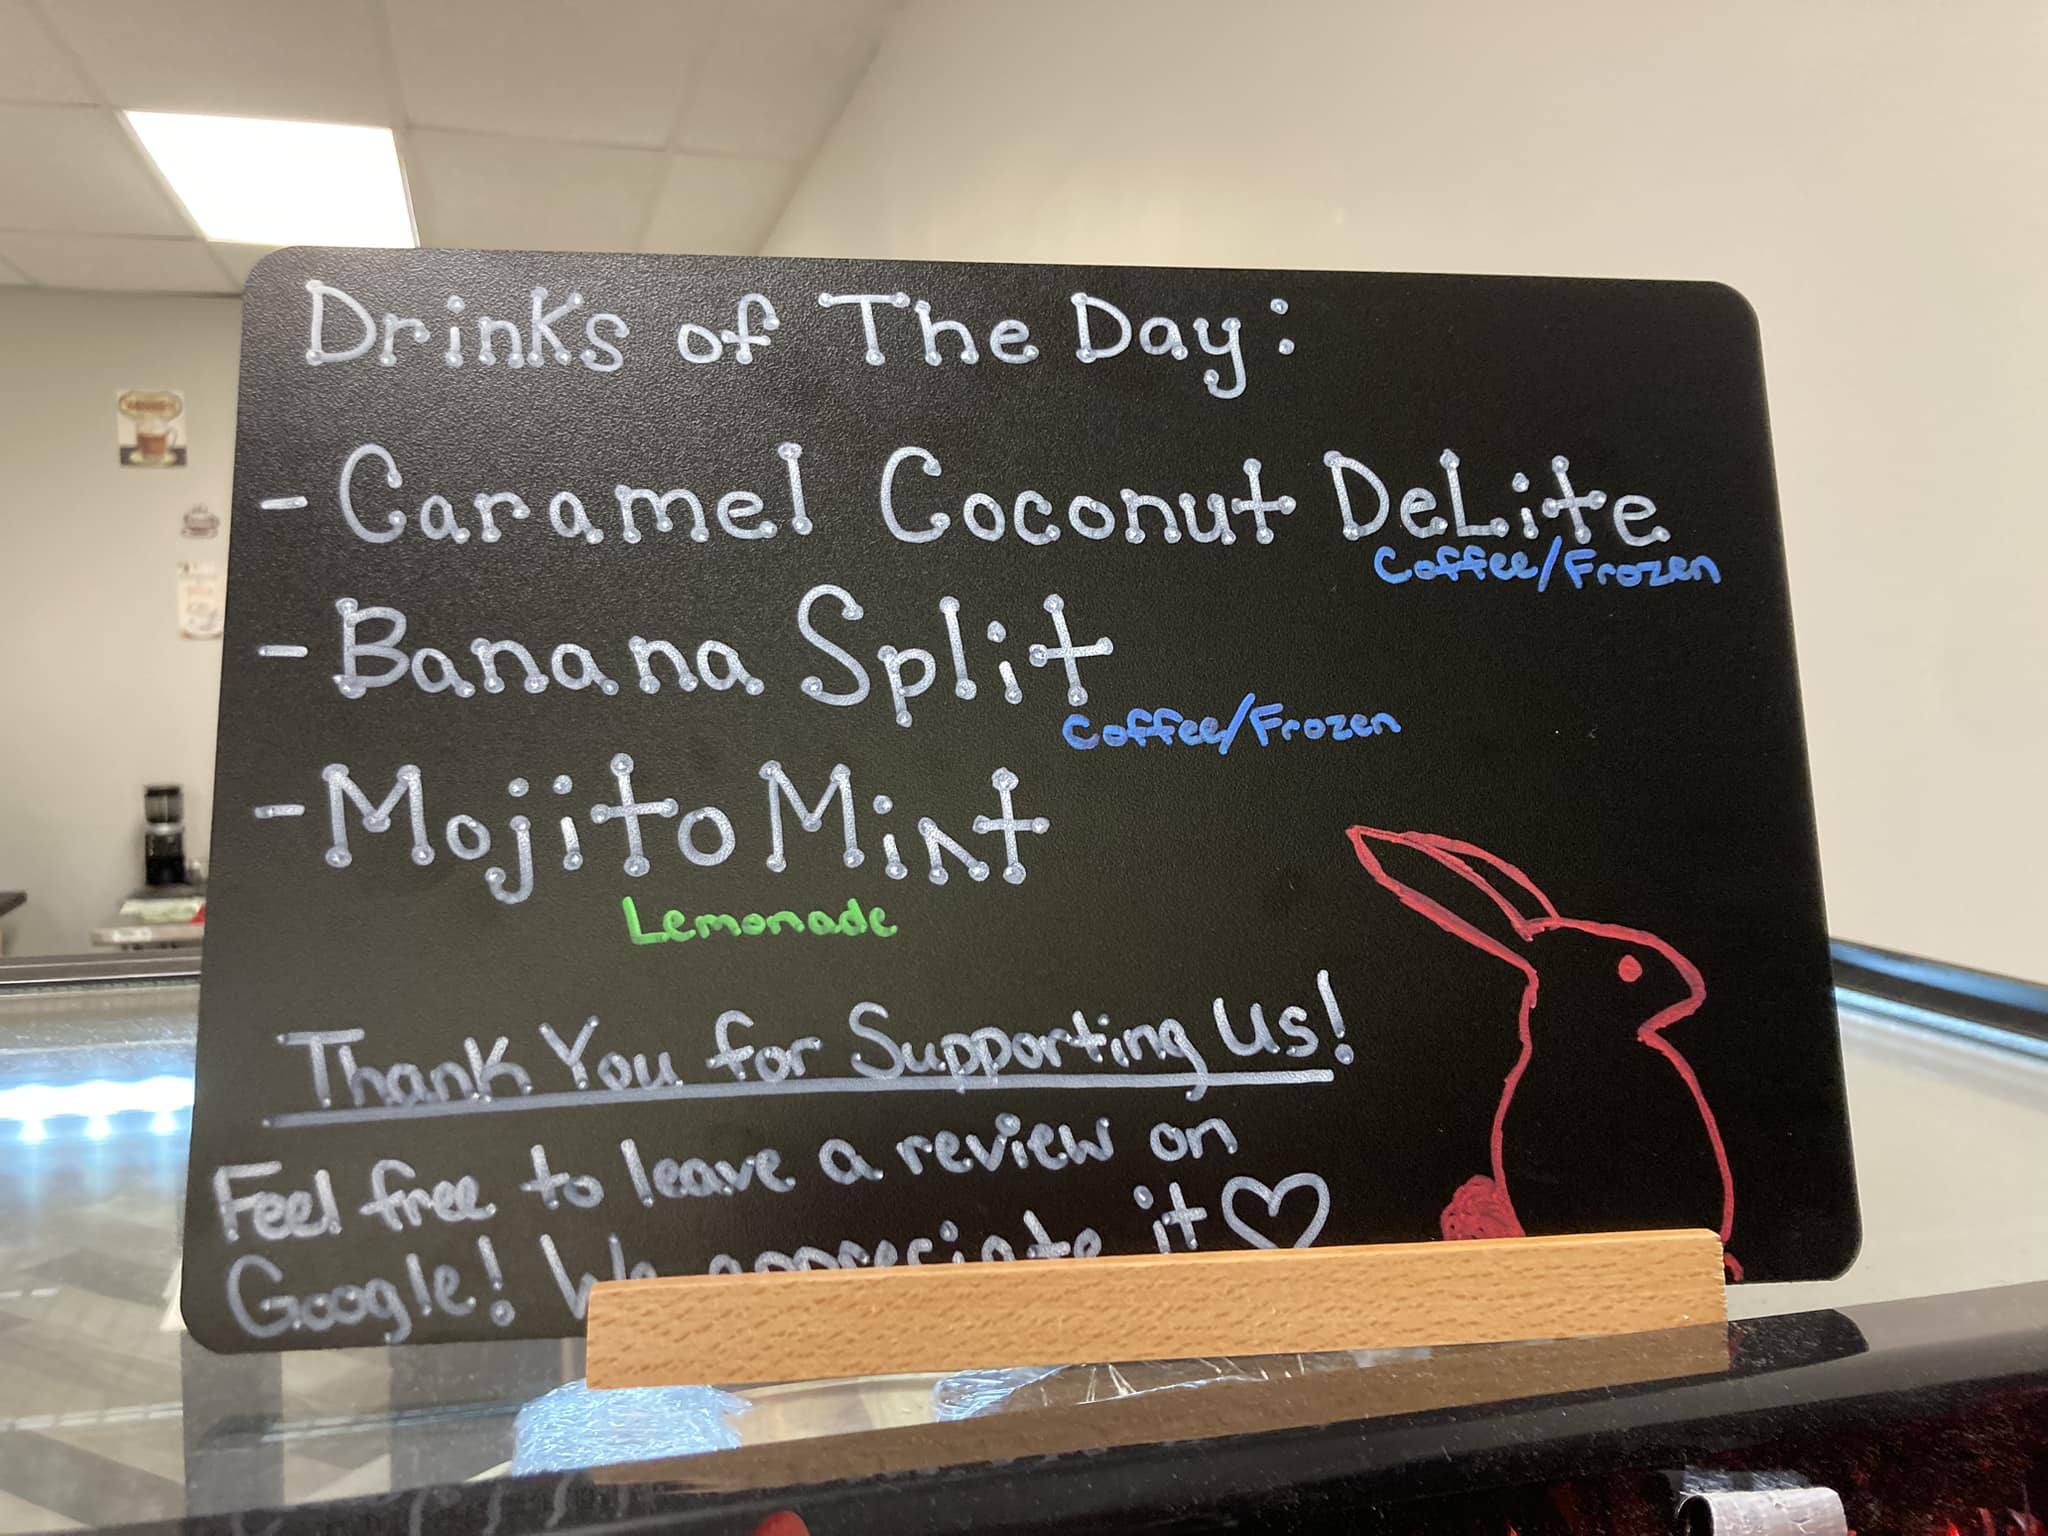 Drinks of The Day:
- Caramel Coconut DeLite
Coffee/Frozen
- Banana Split
Coffee/Frozen
- Mojito Mint
Lemonade
Thank You for Supporting Us!
Feel free to leave a review on
Google! We appreciate it ♡